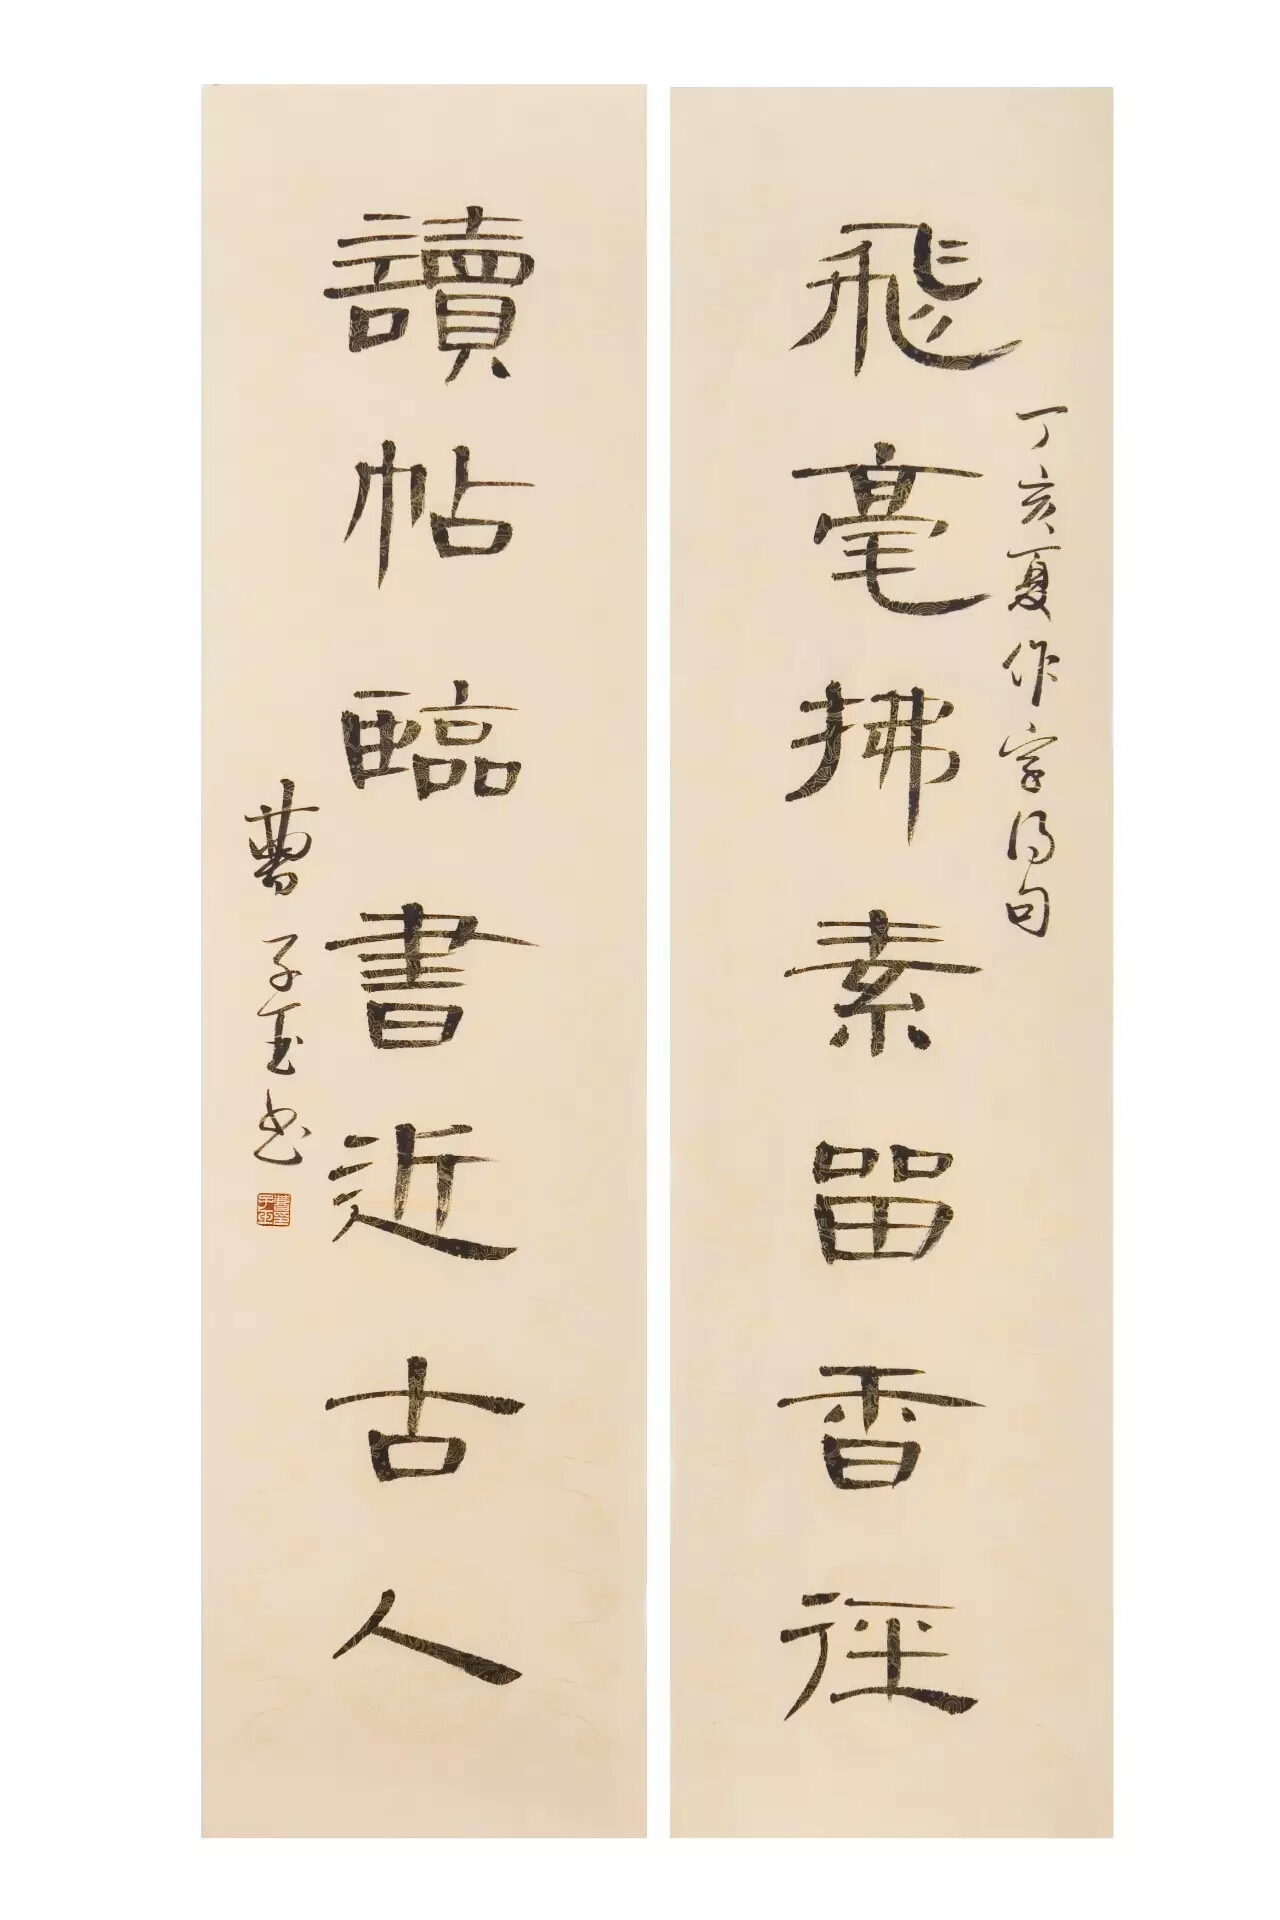 丁亥夏作字得句
飛毫拂素留香徑
讀帖臨書近古人
曹子玉书